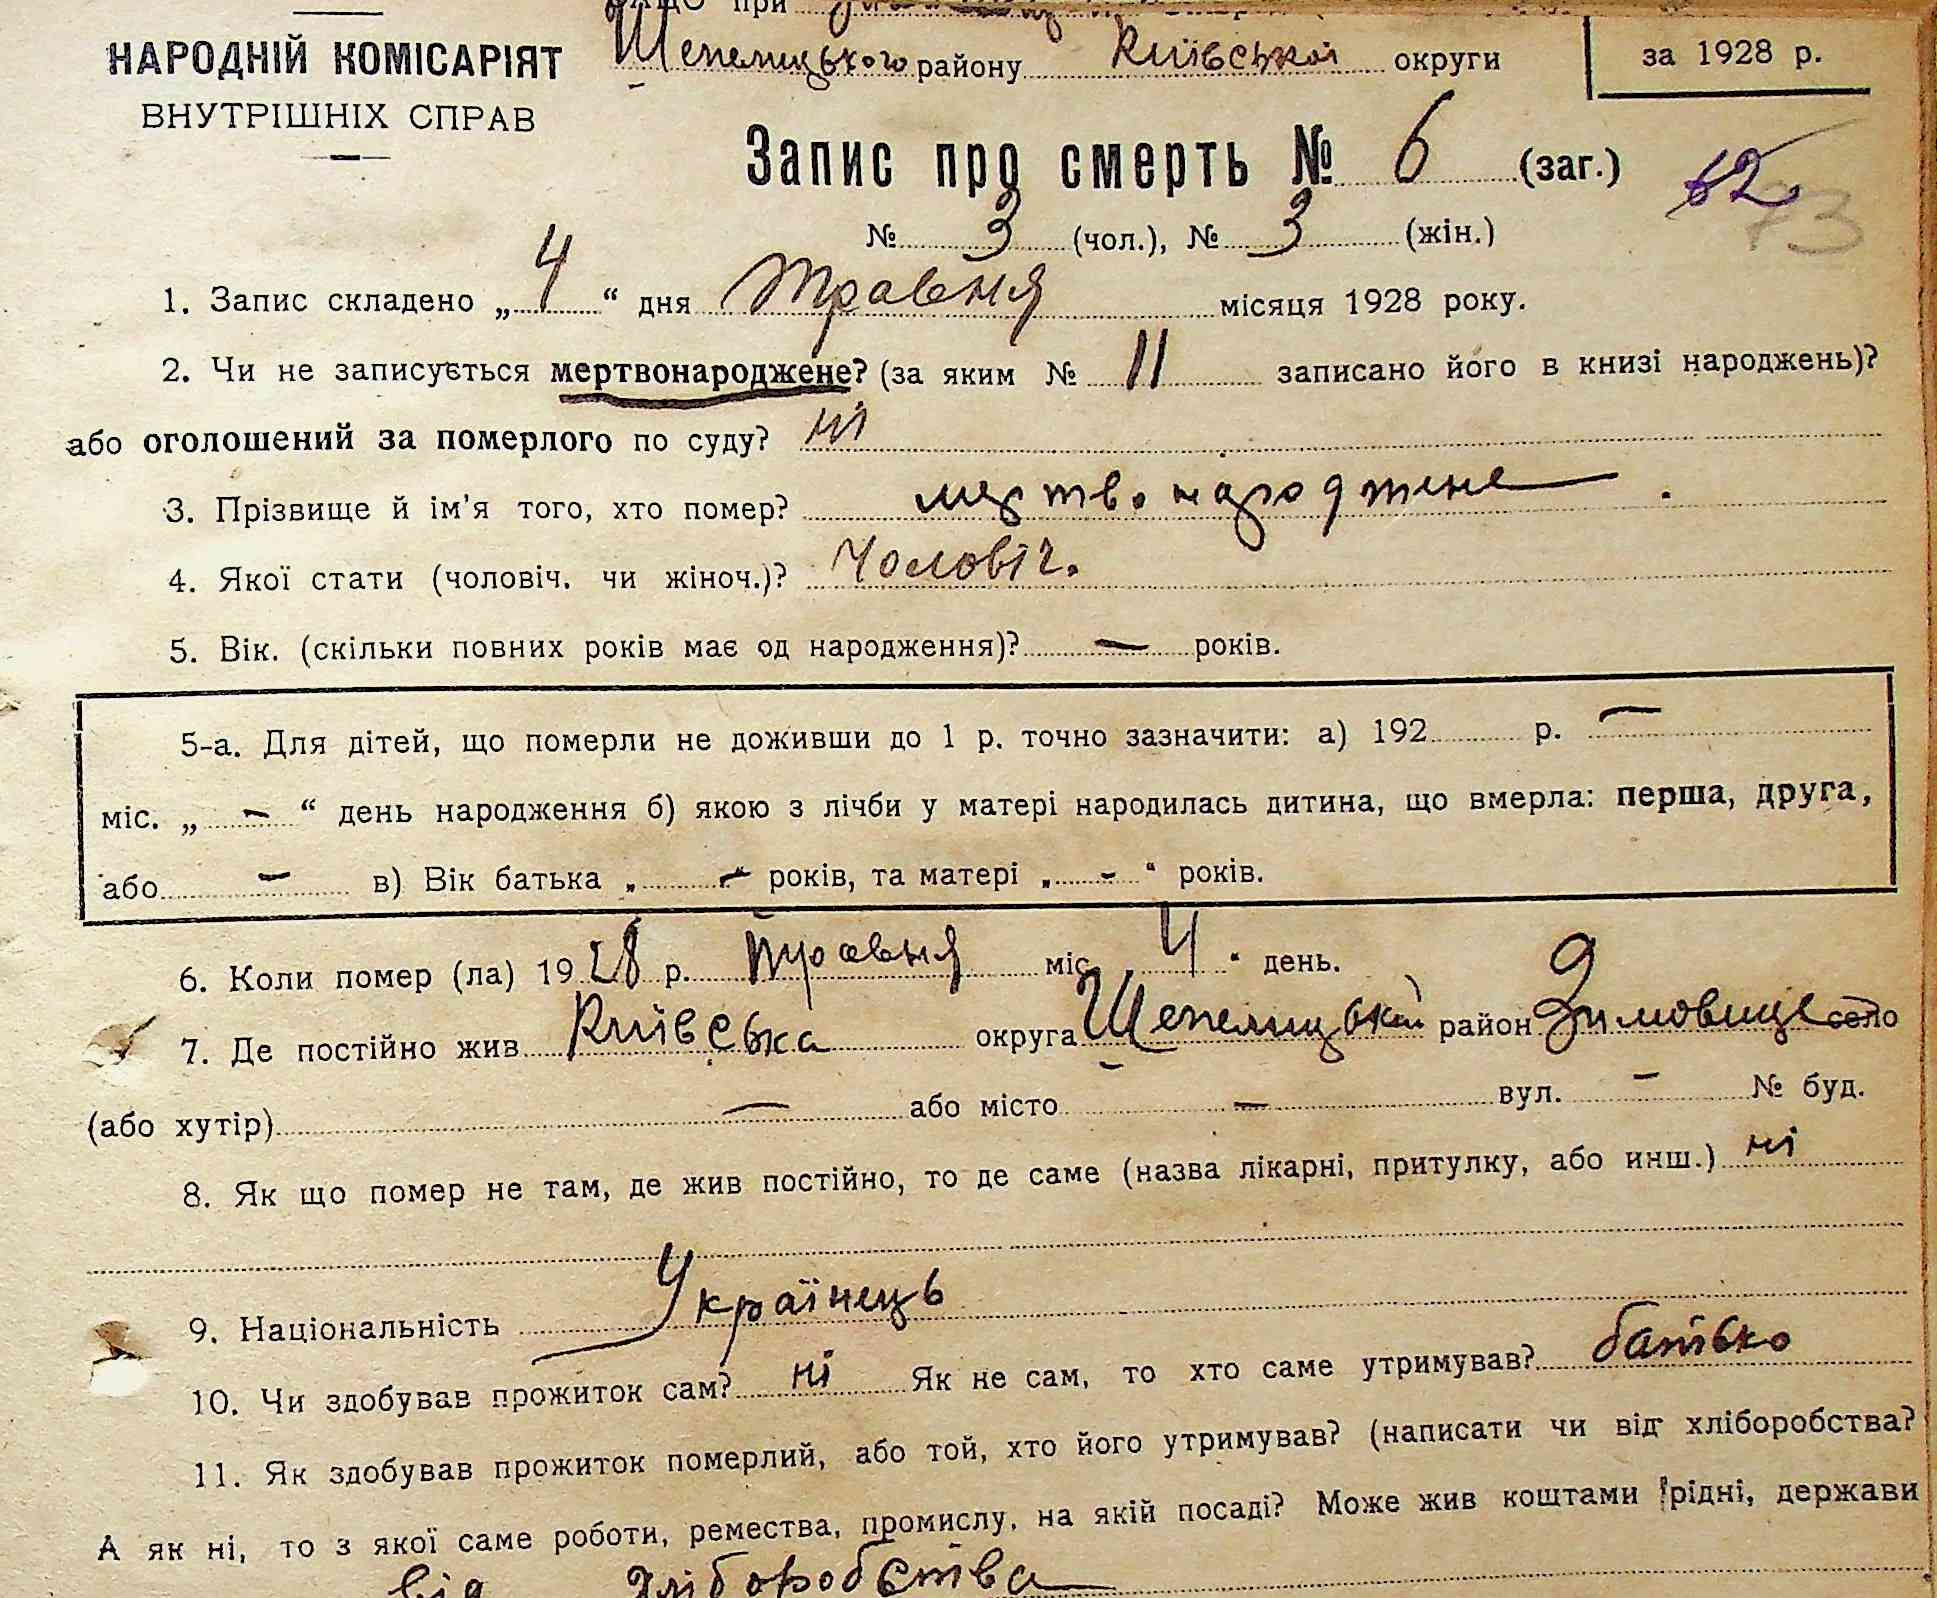 при
НАРОДНІЙ КОМІСАРІЯТ
ВНУТРІШНІХ СПРАВ
Шепелицького району Київської округи
за 1928 р.
Запис про смерть № 6 (заг.)
62
73
№ 3 (чол.), № 3 (жін.)
1. Запис складено „4“ дня травня місяця 1928 року.
2. Чи не записується мертвонароджене? (за яким № 11 записано його в книзі народжень)?
або оголошений за померлого по суду? ні
3. Прізвище й ім'я того, хто помер? мертвонароджене.
4. Якої стати (чоловіч. чи жіноч.)? чоловіч.
5. Вік. (скільки повних років має од народження)? — років.
5-а. Для дітей, що померли не доживши до 1 р. точно зазначити: а) 192 р. —
міс. „ — “ день народження б) якою з лічби у матері народилась дитина, що вмерла: перша, друга,
або — в) Вік батька „ — “ років, та матері „ - “ років.
6. Коли помер (ла) 1928 р. травня міс. 4 “ день.
7. Де постійно жив Київська округа Шепелицький район Зимовище село
(або хутір) — або місто — вул. — № буд.
8. Як що помер не там, де жив постійно, то де саме (назва лікарні, притулку, або инш.) ні
9. Національність Українець
10. Чи здобував прожиток сам? ні Як не сам, то хто саме утримував? батько
11. Як здобував прожиток померлий, або той, хто його утримував? (написати чи від хліборобства?
А як ні, то з якої саме роботи, ремества, промислу, на якій посаді? Може жив коштами рідні, держави
від хліборобства